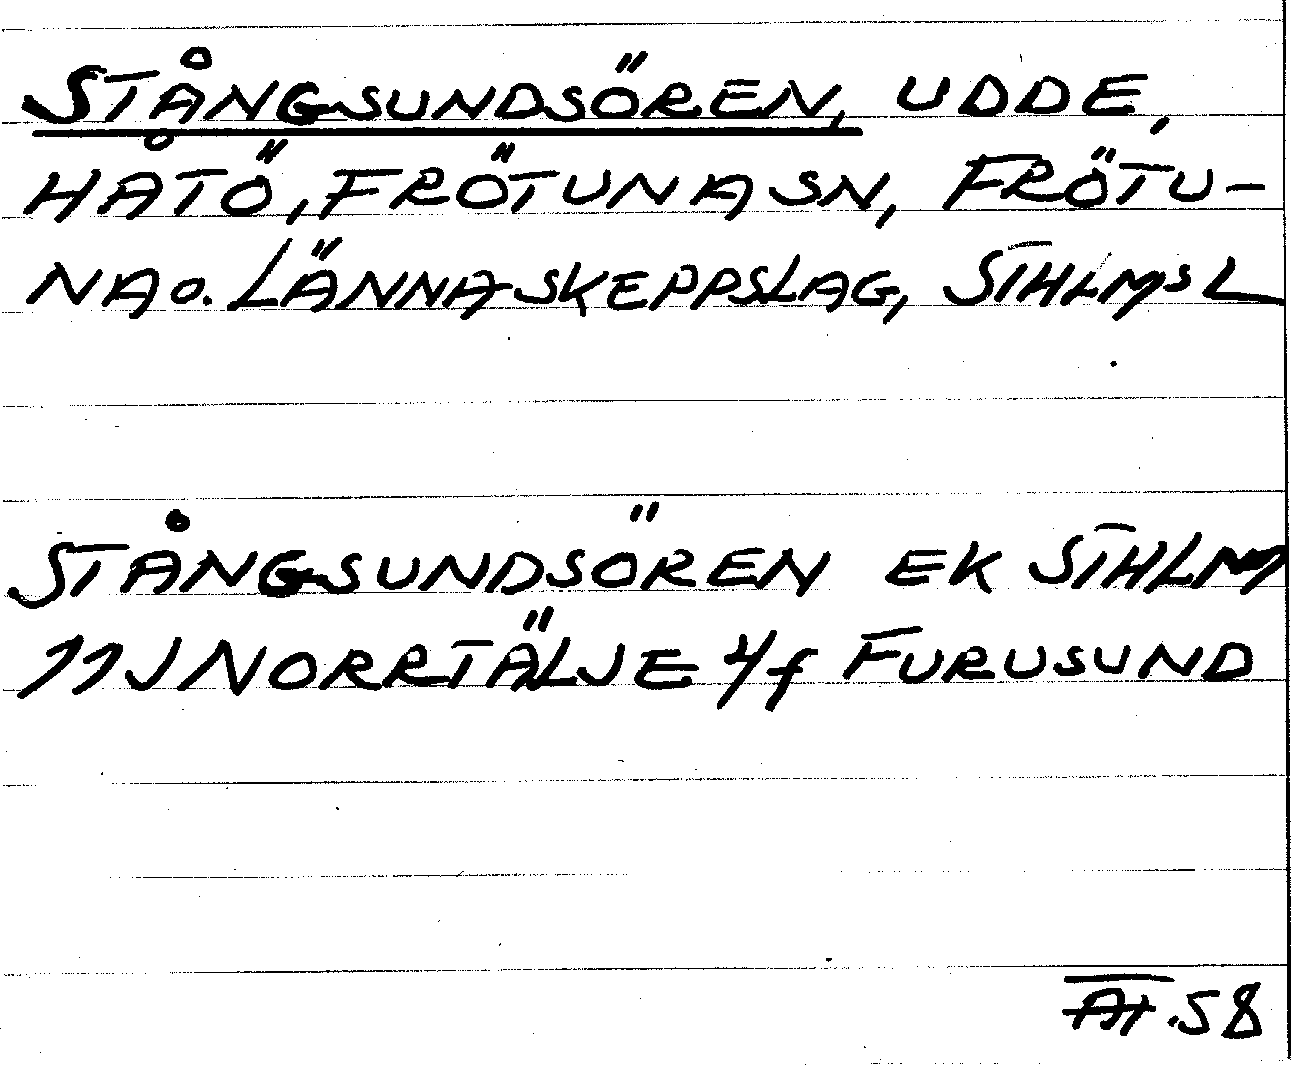 STÅNGSUNDSÖREN, UDDE,
HÅTÖ, FRÖTUNA SN, FRÖTU-
NA o. LÄNNA SKEPPSLAG, STHLMS L
STÅNGSUNDSÖREN EK STHLM
11J NORRTÄLJE
FURUSUND
.58